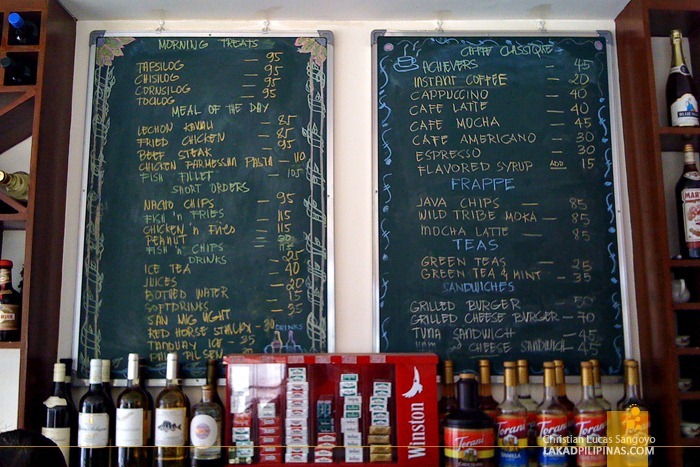 MORNING TREATS
TAPSILOG — 95
CHISILOG — 95
CORNSILOG — 95
TOCILOG — 95
MEAL OF THE DAY
LECHON KAWALI — 85
FRIED CHICKEN — 85
BEEF STEAK — 95
CHICKEN PARMESSAN PASTA — 110
FISH FILLET — 105
SHORT ORDERS
NACHO CHIPS — 95
FISH 'n FRIES — 115
CHICKEN 'n FRIES — 115
PEANUT
FISH 'n CHIPS — 115
DRINKS
ICE TEA
JUICES
BOTTLED WATER
SOFTDRINKS
SAN MIG LIGHT
RED HORSE STALLION - 30
TANDUAY ICE - 35
PALE PILSEN
DRINKS
CAFFE CLASSIQUE
ACHIEVERS — 45
INSTANT COFFEE — 20
CAPPUCCINO — 40
CAFE LATTE — 40
CAFE MOCHA — 45
CAFE AMERICANO — 30
ESPRESSO — 30
FLAVORED SYRUP ADD 15
FRAPPE
JAVA CHIPS — 85
WILD TRIBE MOKA — 85
MOCHA LATTE — 85
TEAS
GREEN TEAS — 25
GREEN TEA & MINT — 35
SANDWICHES
GRILLED BURGER — 50
GRILLED CHEESE BURGER — 70
TUNA SANDWICH — 45
CHEESE SANDWICH — 45
Winston
TORANI
TORANI
TORANI
TORANI
Christian Lucas Sangoyo
LAKADPILIPINAS.COM